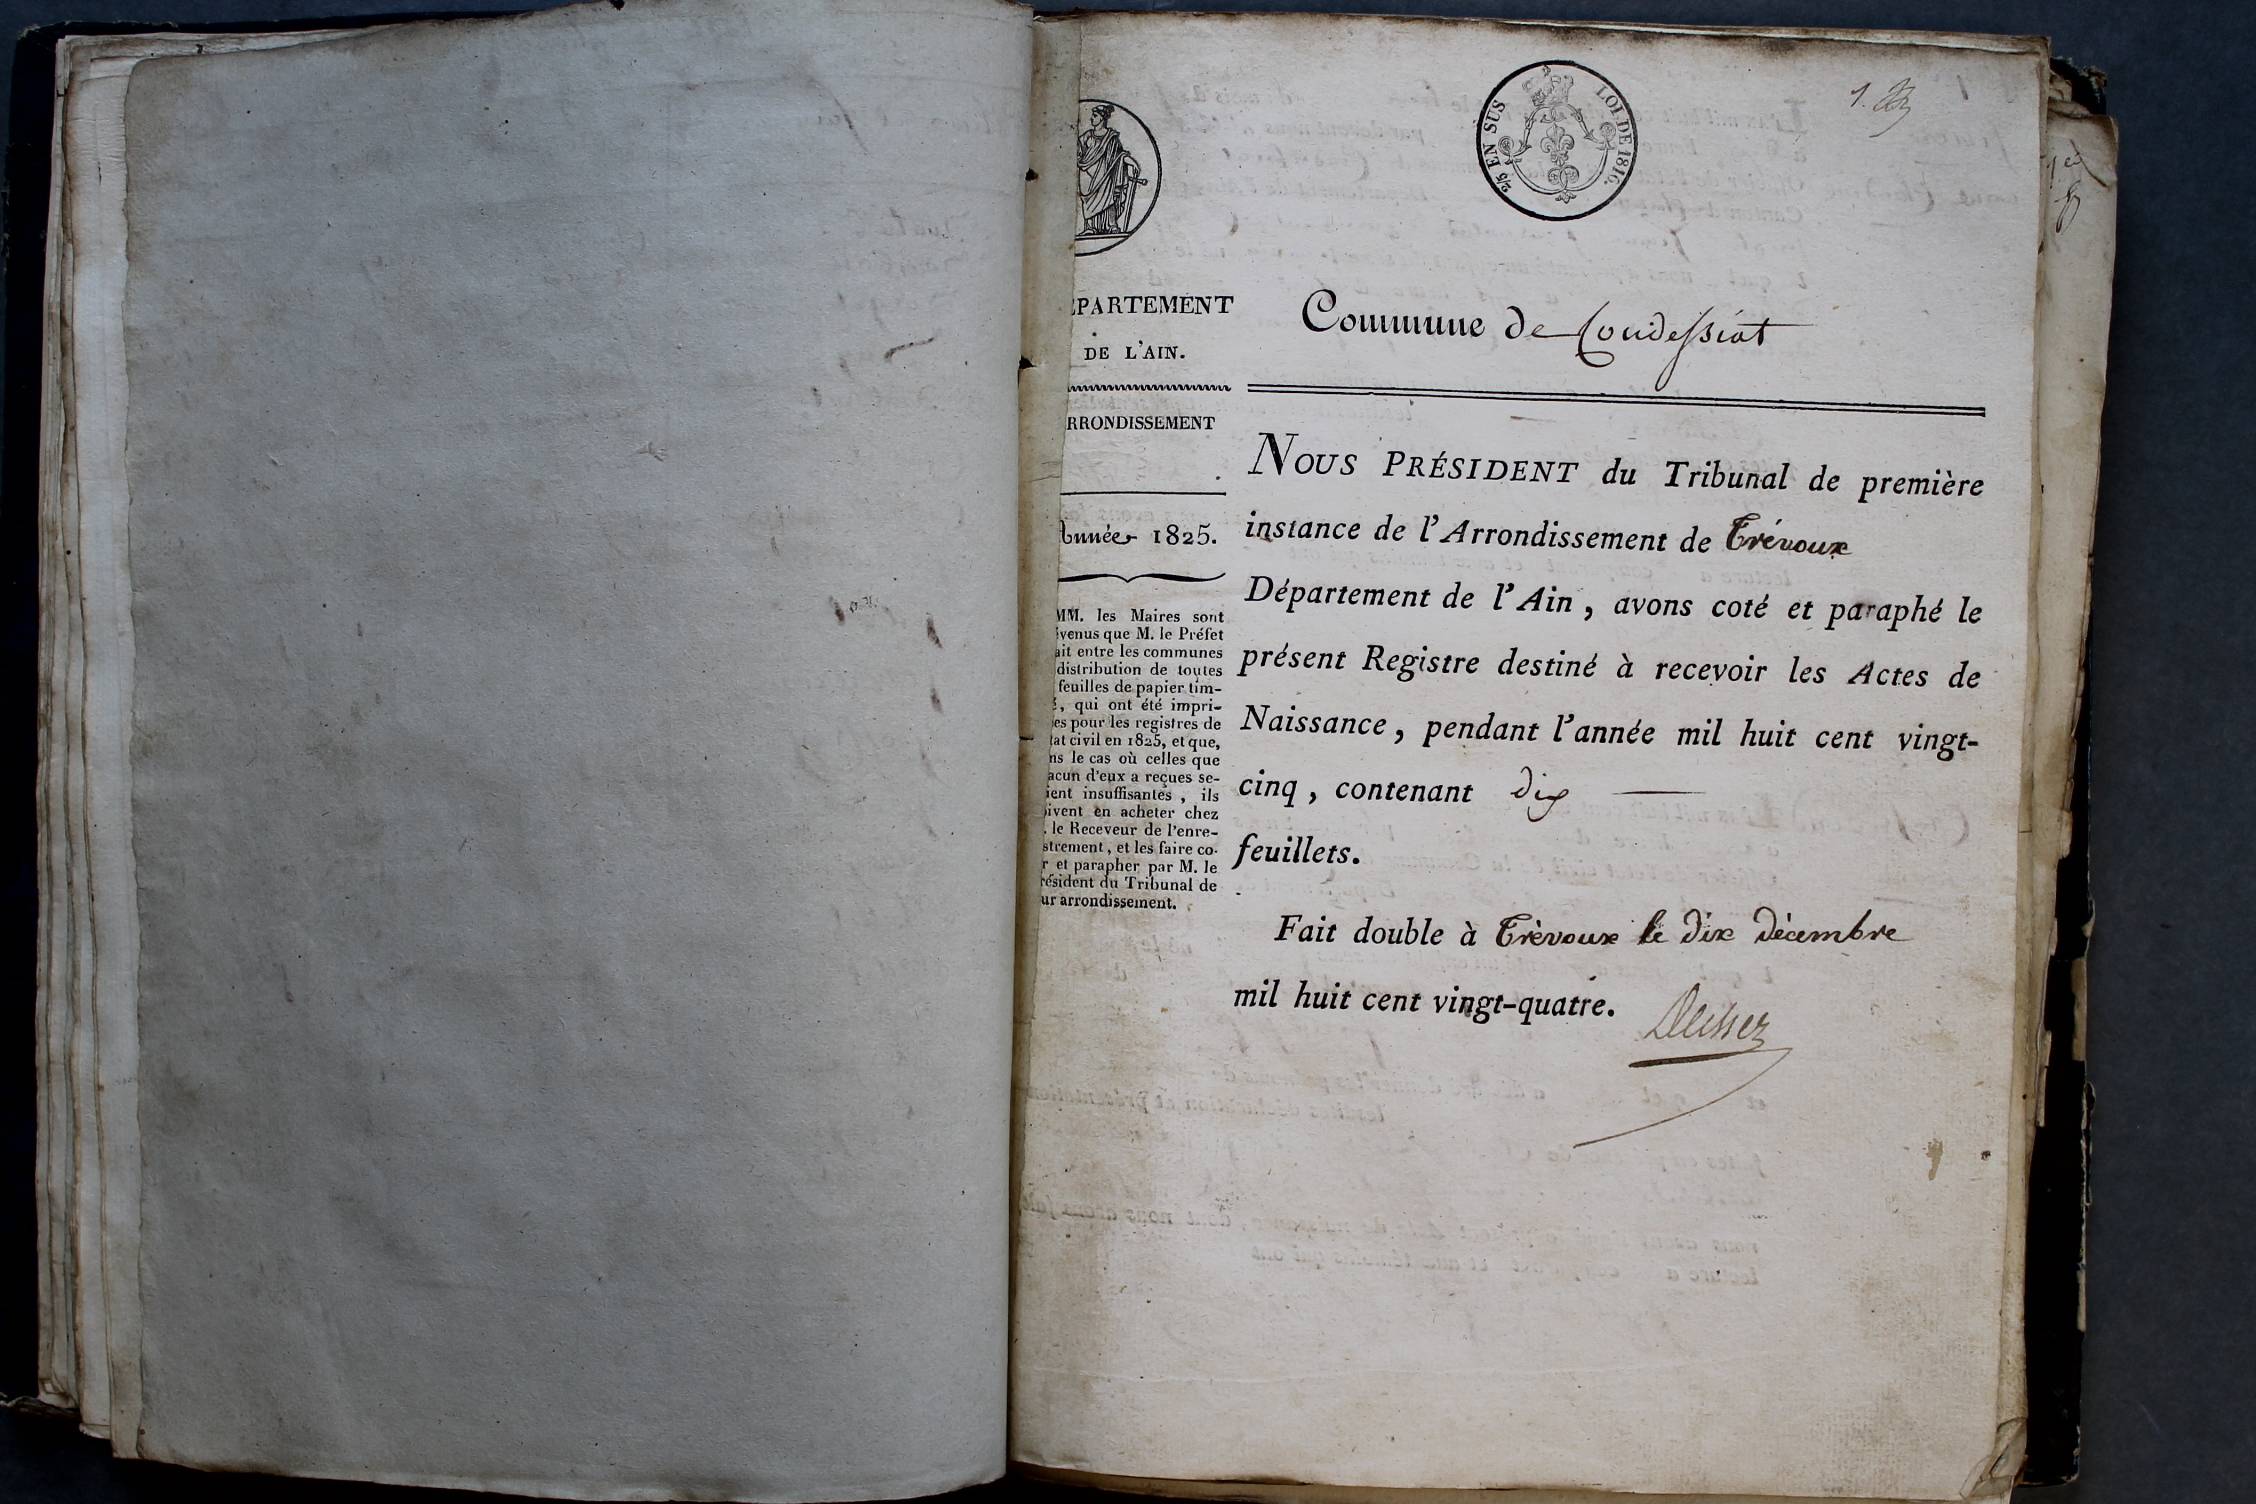 2/5 EN SUS
LOI DE 1816.
1.
ÉPARTEMENT
DE L'AIN.
RRONDISSEMENT
Année 1825.
MM. les Maires sont
évenus que M. le Préfet
ait entre les communes
distribution de toutes
feuilles de papier tim-
é, qui ont été impri-
es pour les registres de
tat civil en 1825, et que,
ns le cas où celles que
acun d'eux a reçues se-
ient insuffisantes, ils
oivent en acheter chez
. le Receveur de l'enre-
strement, et les faire co-
r et parapher par M. le
résident du Tribunal de
ur arrondissement.
Commune de Condeissiat
NOUS PRÉSIDENT du Tribunal de première
instance de l'Arrondissement de Trévoux
Département de l'Ain, avons coté et paraphé le
présent Registre destiné à recevoir les Actes de
Naissance, pendant l'année mil huit cent vingt-
cinq, contenant dix
feuillets.
Fait double à Trévoux le dix décembre
mil huit cent vingt-quatre.